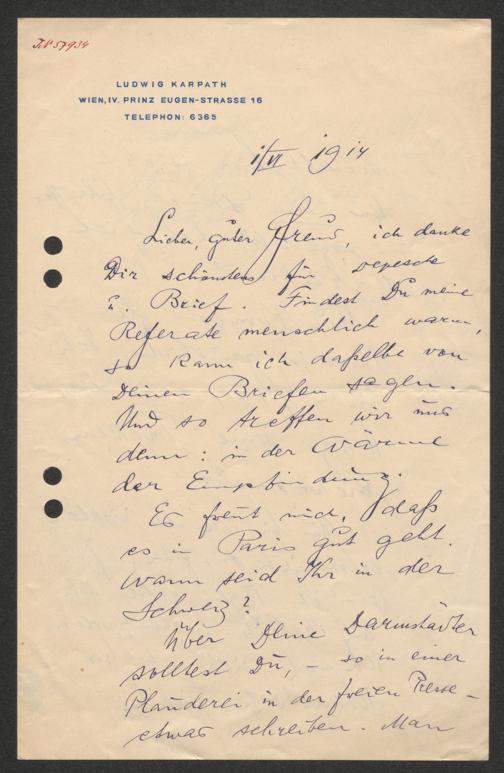 LUDWIG KARPATH
WIEN, IV. PRINZ EUGEN-STRASSE 16
TELEPHON: 6365
1/VI 1914
Lieber, guter Freund, ich danke
Dir schönstens für Depesche
u. Brief. Findest Du meine
Referate menschlich warm,
so kann ich daßelbe von
Deinen Briefen sagen.
Und so treffen wir uns
denn: in der Wärme
der Empfindung.
Es freut mich, daß
es in Paris gut geht.
Wann seid Ihr in der
Schweiz?
Über Deine Darmstädter
solltest Du, – so in einer
Plauderei in der freien Presse –
etwas schreiben. Man